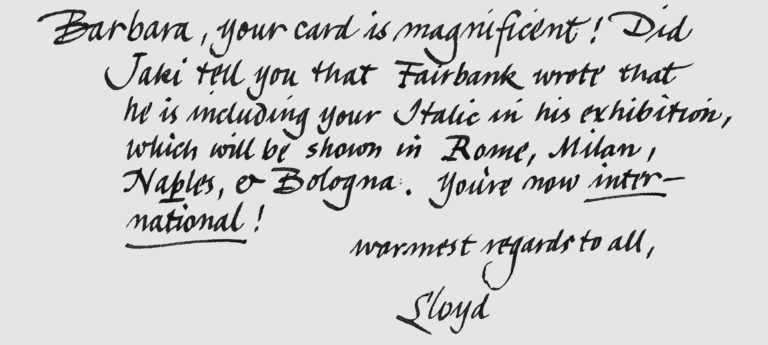 Barbara, your card is magnificent! Did
Jaki tell you that Fairbank wrote that
he is including your Italic in his exhibition,
which will be shown in Rome, Milan,
Naples, & Bologna. You're now inter-
national!
warmest regards to all,
Lloyd